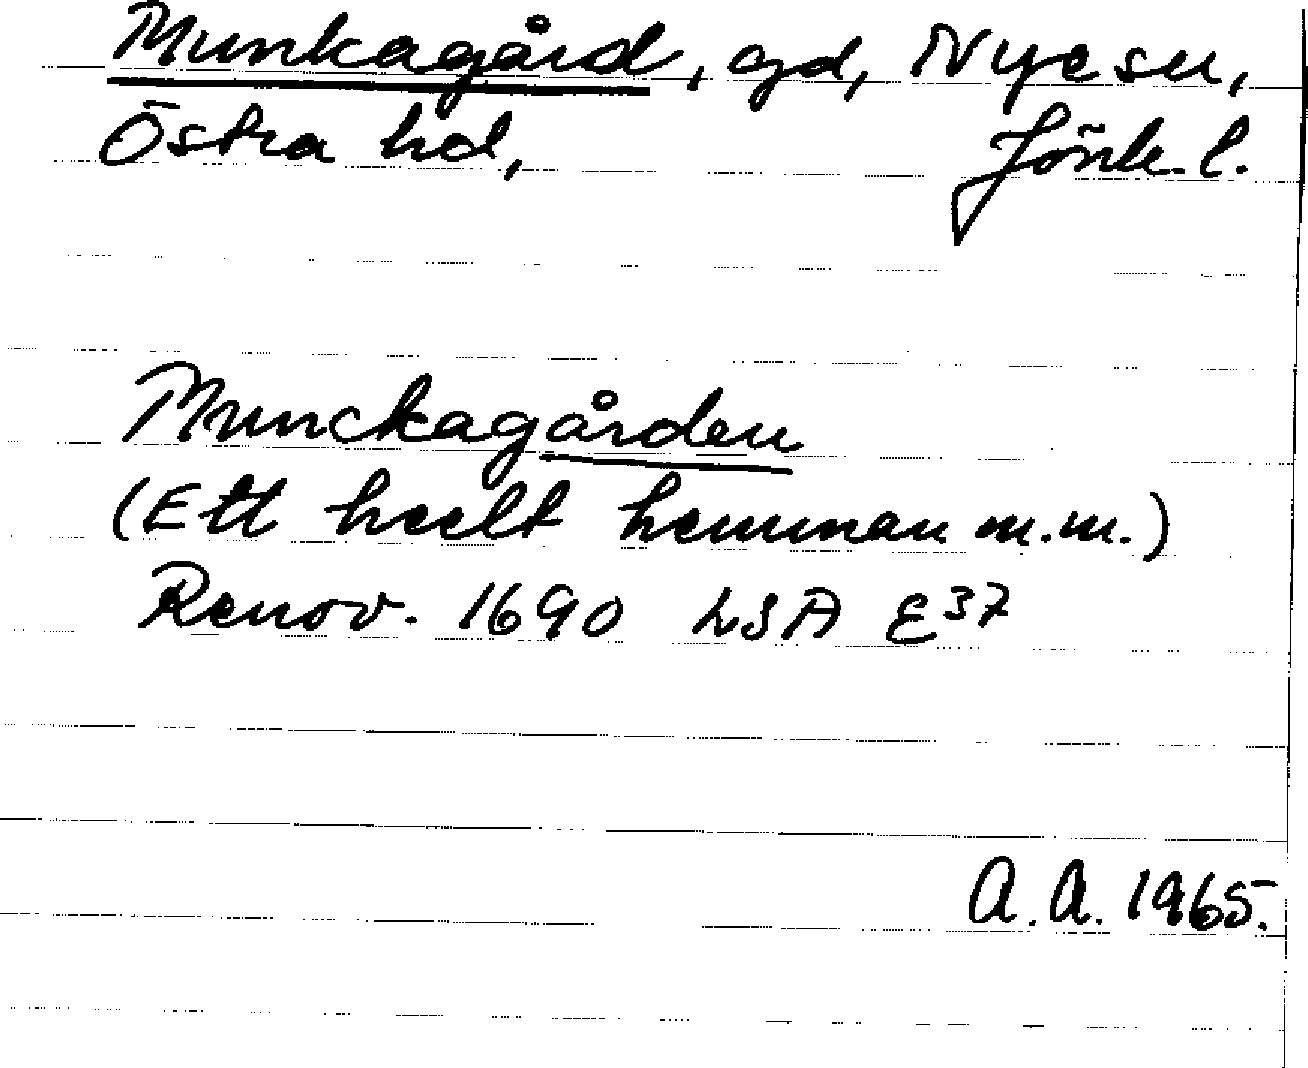 Munkagård, gd, Nye sn,
Östra hd, Jönk. l.
Munckagården
(Ett heelt hemman m.m.)
Renov. 1690 LSA E37
A.A. 1965.